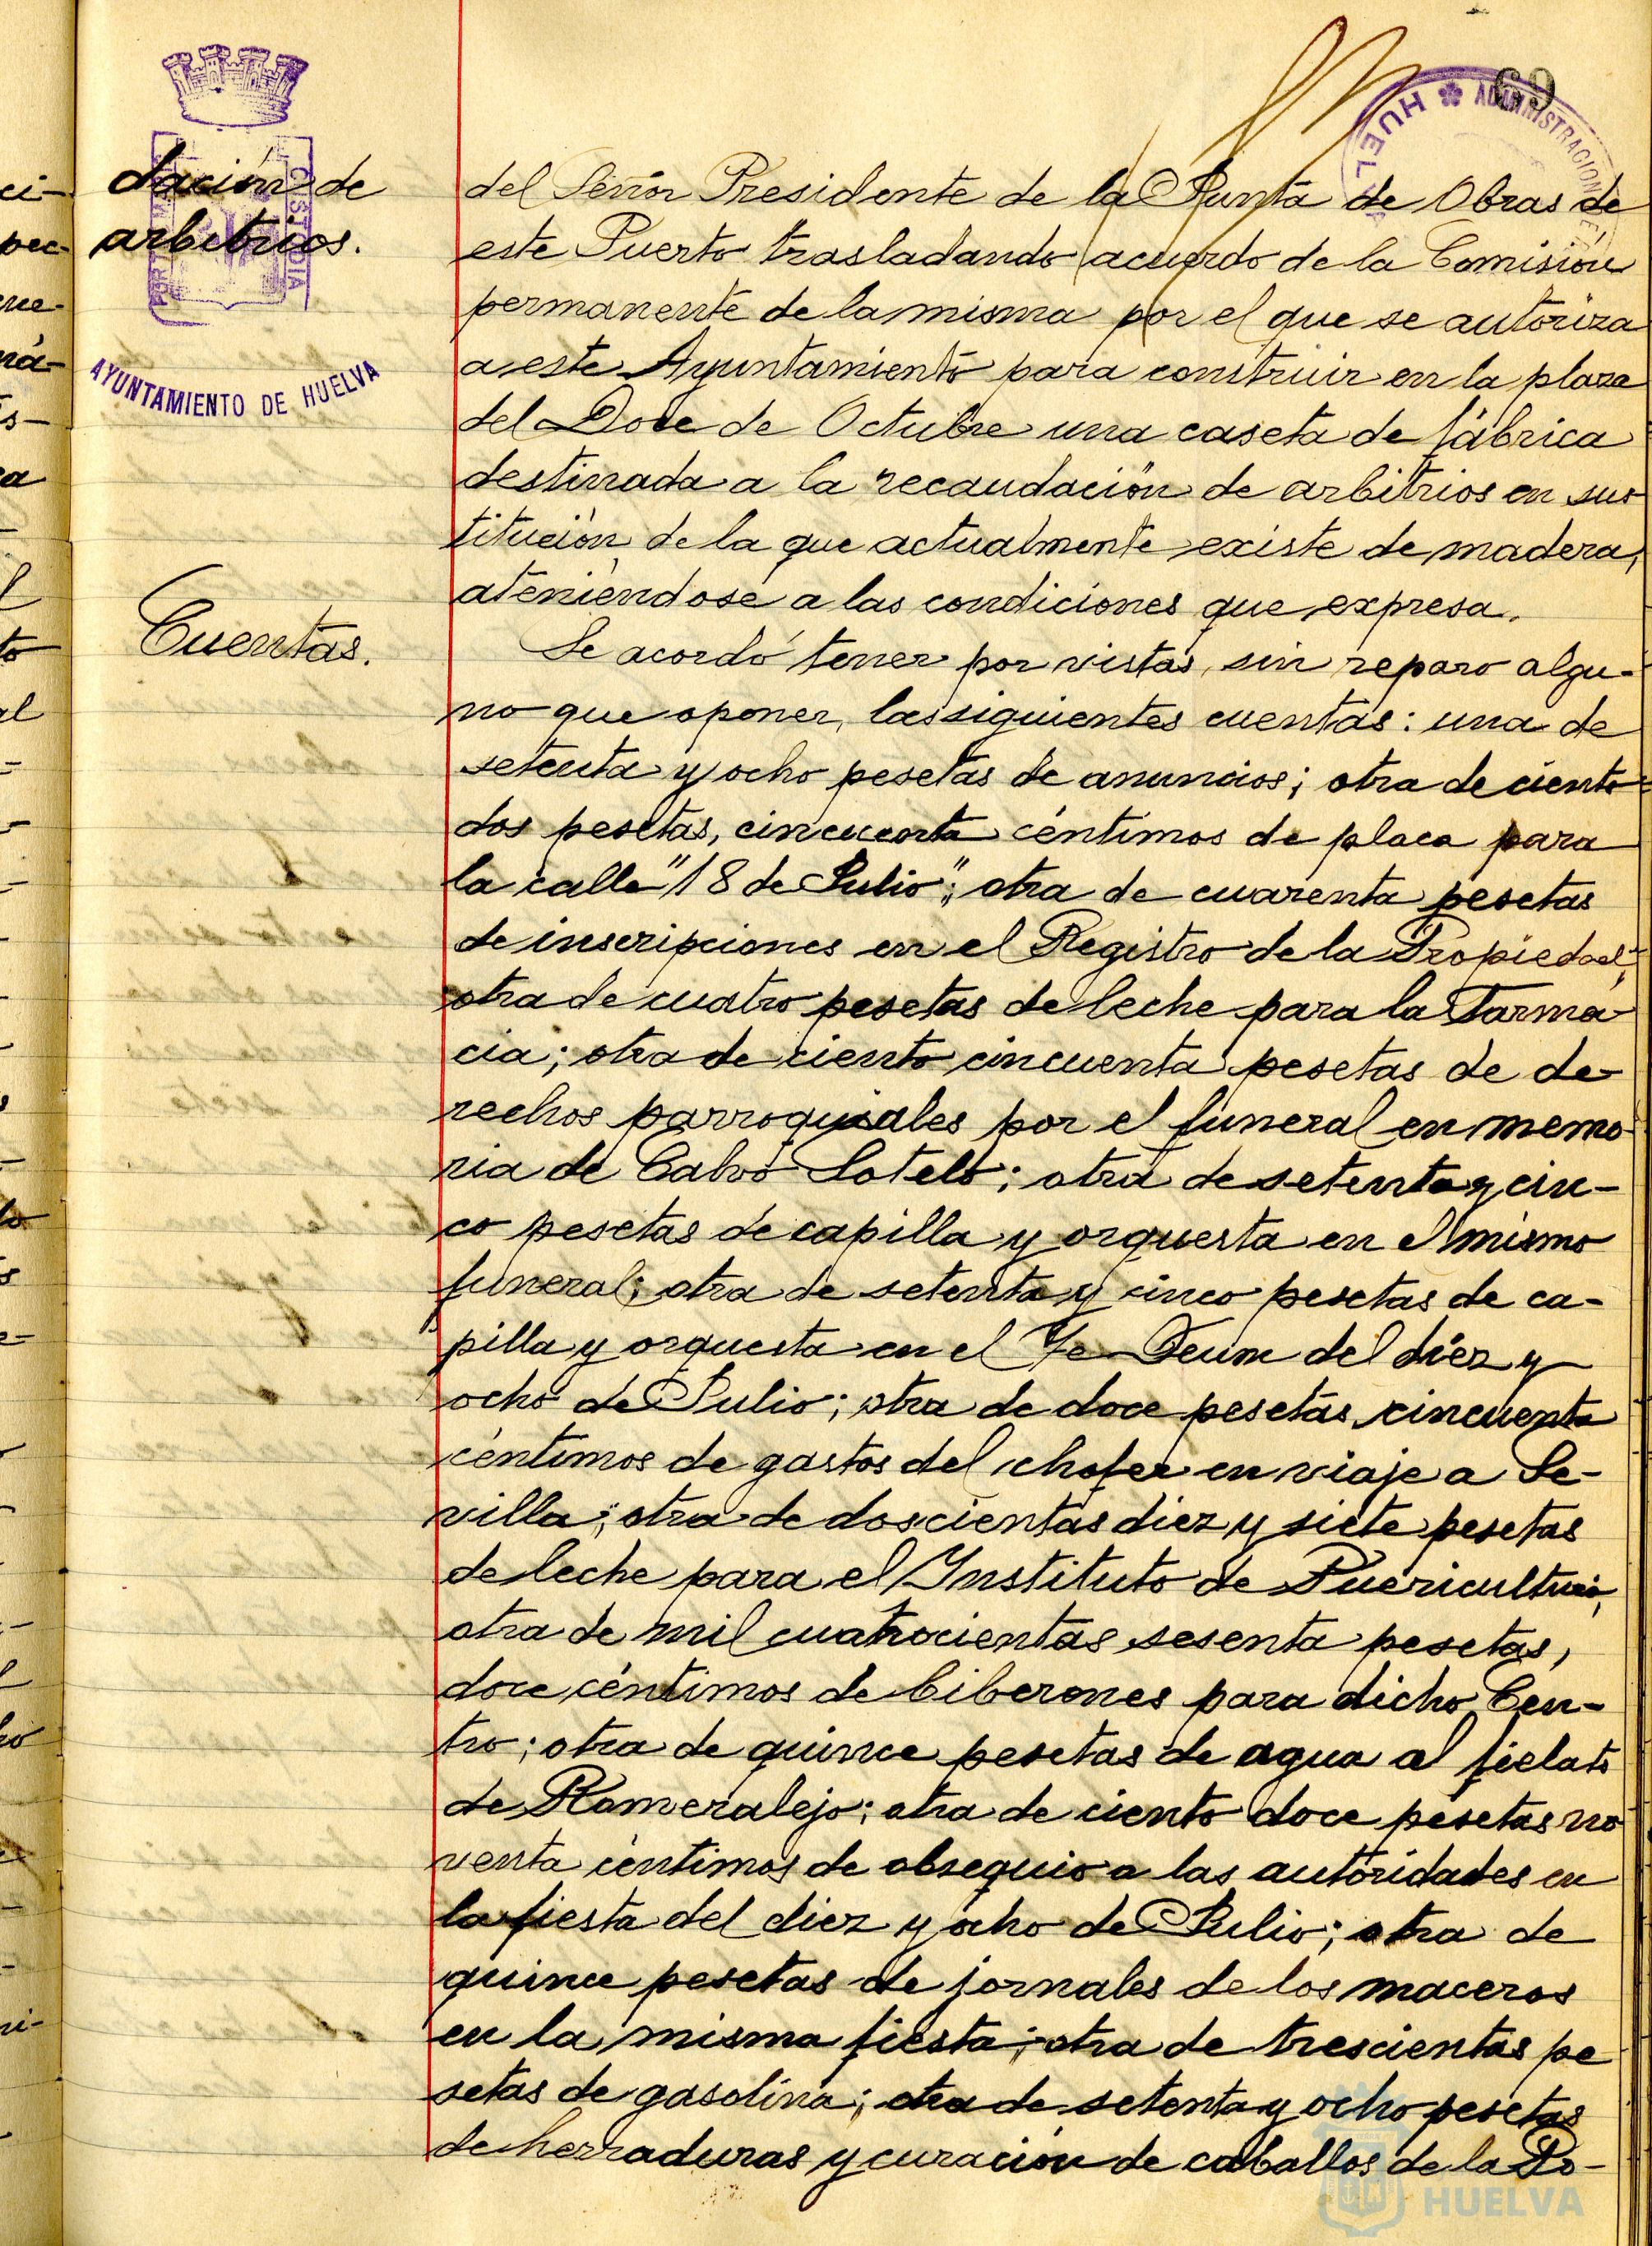 69
ADMINISTRACION DE
HUELVA
PORTUS MARIS
CUSTODIA
AYUNTAMIENTO DE HUELVA
dación de
arbitrios.
del Señor Presidente de la Junta de Obras de
este Puerto trasladando acuerdo de la Comisión
permanente de la misma por el que se autoriza
a este Ayuntamiento para construir en la plaza
del Doce de Octubre una caseta de fábrica
destinada a la recaudación de arbitrios en sus
titución de la que actualmente existe de madera,
ateniéndose a las condiciones que expresa.
Cuentas.
Se acordó tener por vistas, sin reparo algu-
no que oponer, las siguientes cuentas: una de
setenta y ocho pesetas de anuncios; otra de ciento
dos pesetas, cincuenta céntimos de placa para
la calle "18 de Julio"; otra de cuarenta pesetas
de inscripciones en el Registro de la Propiedad;
otra de cuatro pesetas de leche para la Farma-
cia; otra de ciento cincuenta pesetas de de-
rechos parroquiales por el funeral en memo-
ria de Calvo Sotelo; otra de setenta y cin-
co pesetas de capilla y orquesta en el mismo
funeral; otra de setenta y cinco pesetas de ca-
pilla y orquesta en el Te Deum del diez y
ocho de Julio; otra de doce pesetas, cincuenta
céntimos de gastos del chofer en viaje a Se-
villa; otra de doscientas diez y siete pesetas
de leche para el Instituto de Puericultura;
otra de mil cuatrocientas sesenta pesetas,
doce céntimos de biberones para dicho Cen-
tro; otra de quince pesetas de agua al fielato
de Romeralejo; otra de ciento doce pesetas no
venta céntimos de obsequio a las autoridades en
la fiesta del diez y ocho de Julio; otra de
quince pesetas de jornales de los maceros
en la misma fiesta; otra de trescientas pe
setas de gasolina; otra de setenta y ocho pesetas
de herraduras y curación de caballos de la Po-
HUELVA